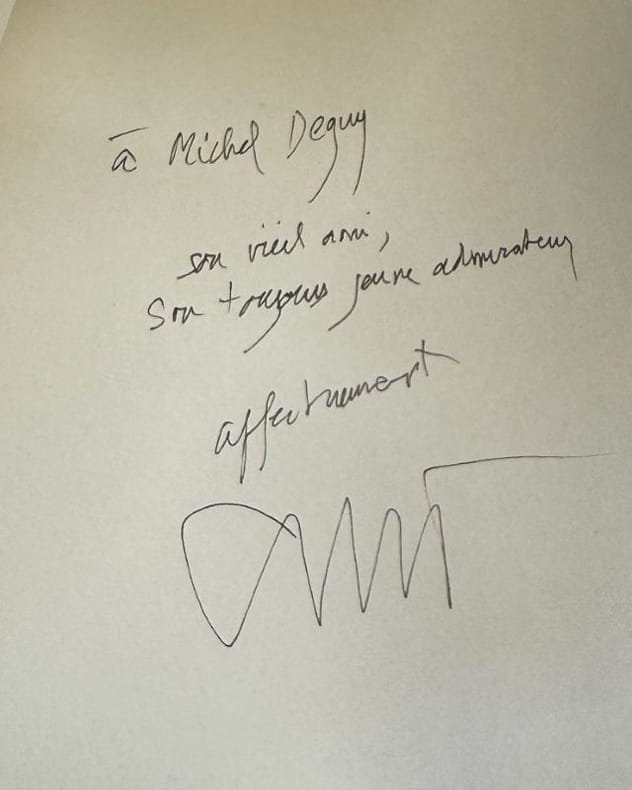 à Michel Deguy
son vieil ami,
Son toujours jeune admirateur
affectueusement